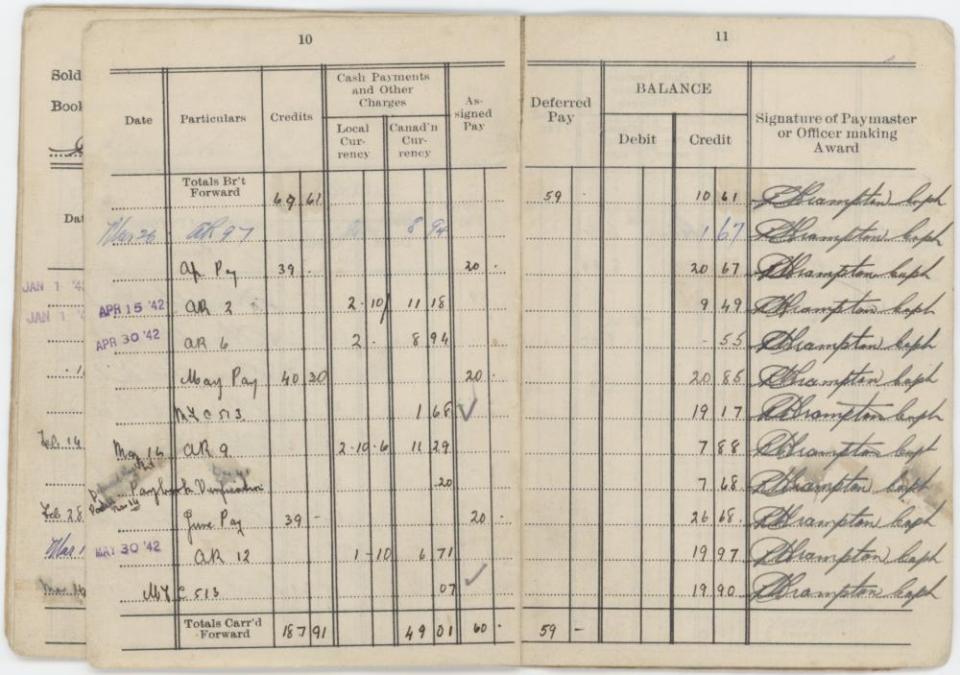 10
11
Sold
Book
Date
Particulars
Credits
Cash Payments
and Other
Charges
Local
Cur-
rency
Canad'n
Cur-
rency
As-
signed
Pay
Deferred
Pay
BALANCE
Debit
Credit
Signature of Paymaster
or Officer making
Award
Dat
Totals Br't
Forward 67 61 59 - 10 61
Mar 26 AR 97 8 94 1 67
Ap Pay 39 - 20 - 20 67
JAN 1 '4
APR 15 '42 AR 2 2-10/ 11 18 9 49
JAN 1 '
APR 30 '42 AR 6 2 - 8 94 - 55
May Pay 40 30 20 - 20 85
513 1 68 19 17
Feb 14
May 16 AR 9 2-10-6 11 29 7 88
Paybook Verification 20 7 68
Feb 28
June Pay 39 - 20 - 26 68
Mar 1
MAY 30 '42 AR 12 1-10 6 71 19 97
Mar 16
C 513 07 19 90
Totals Carr'd
Forward 187 91 49 01 60 - 59 -